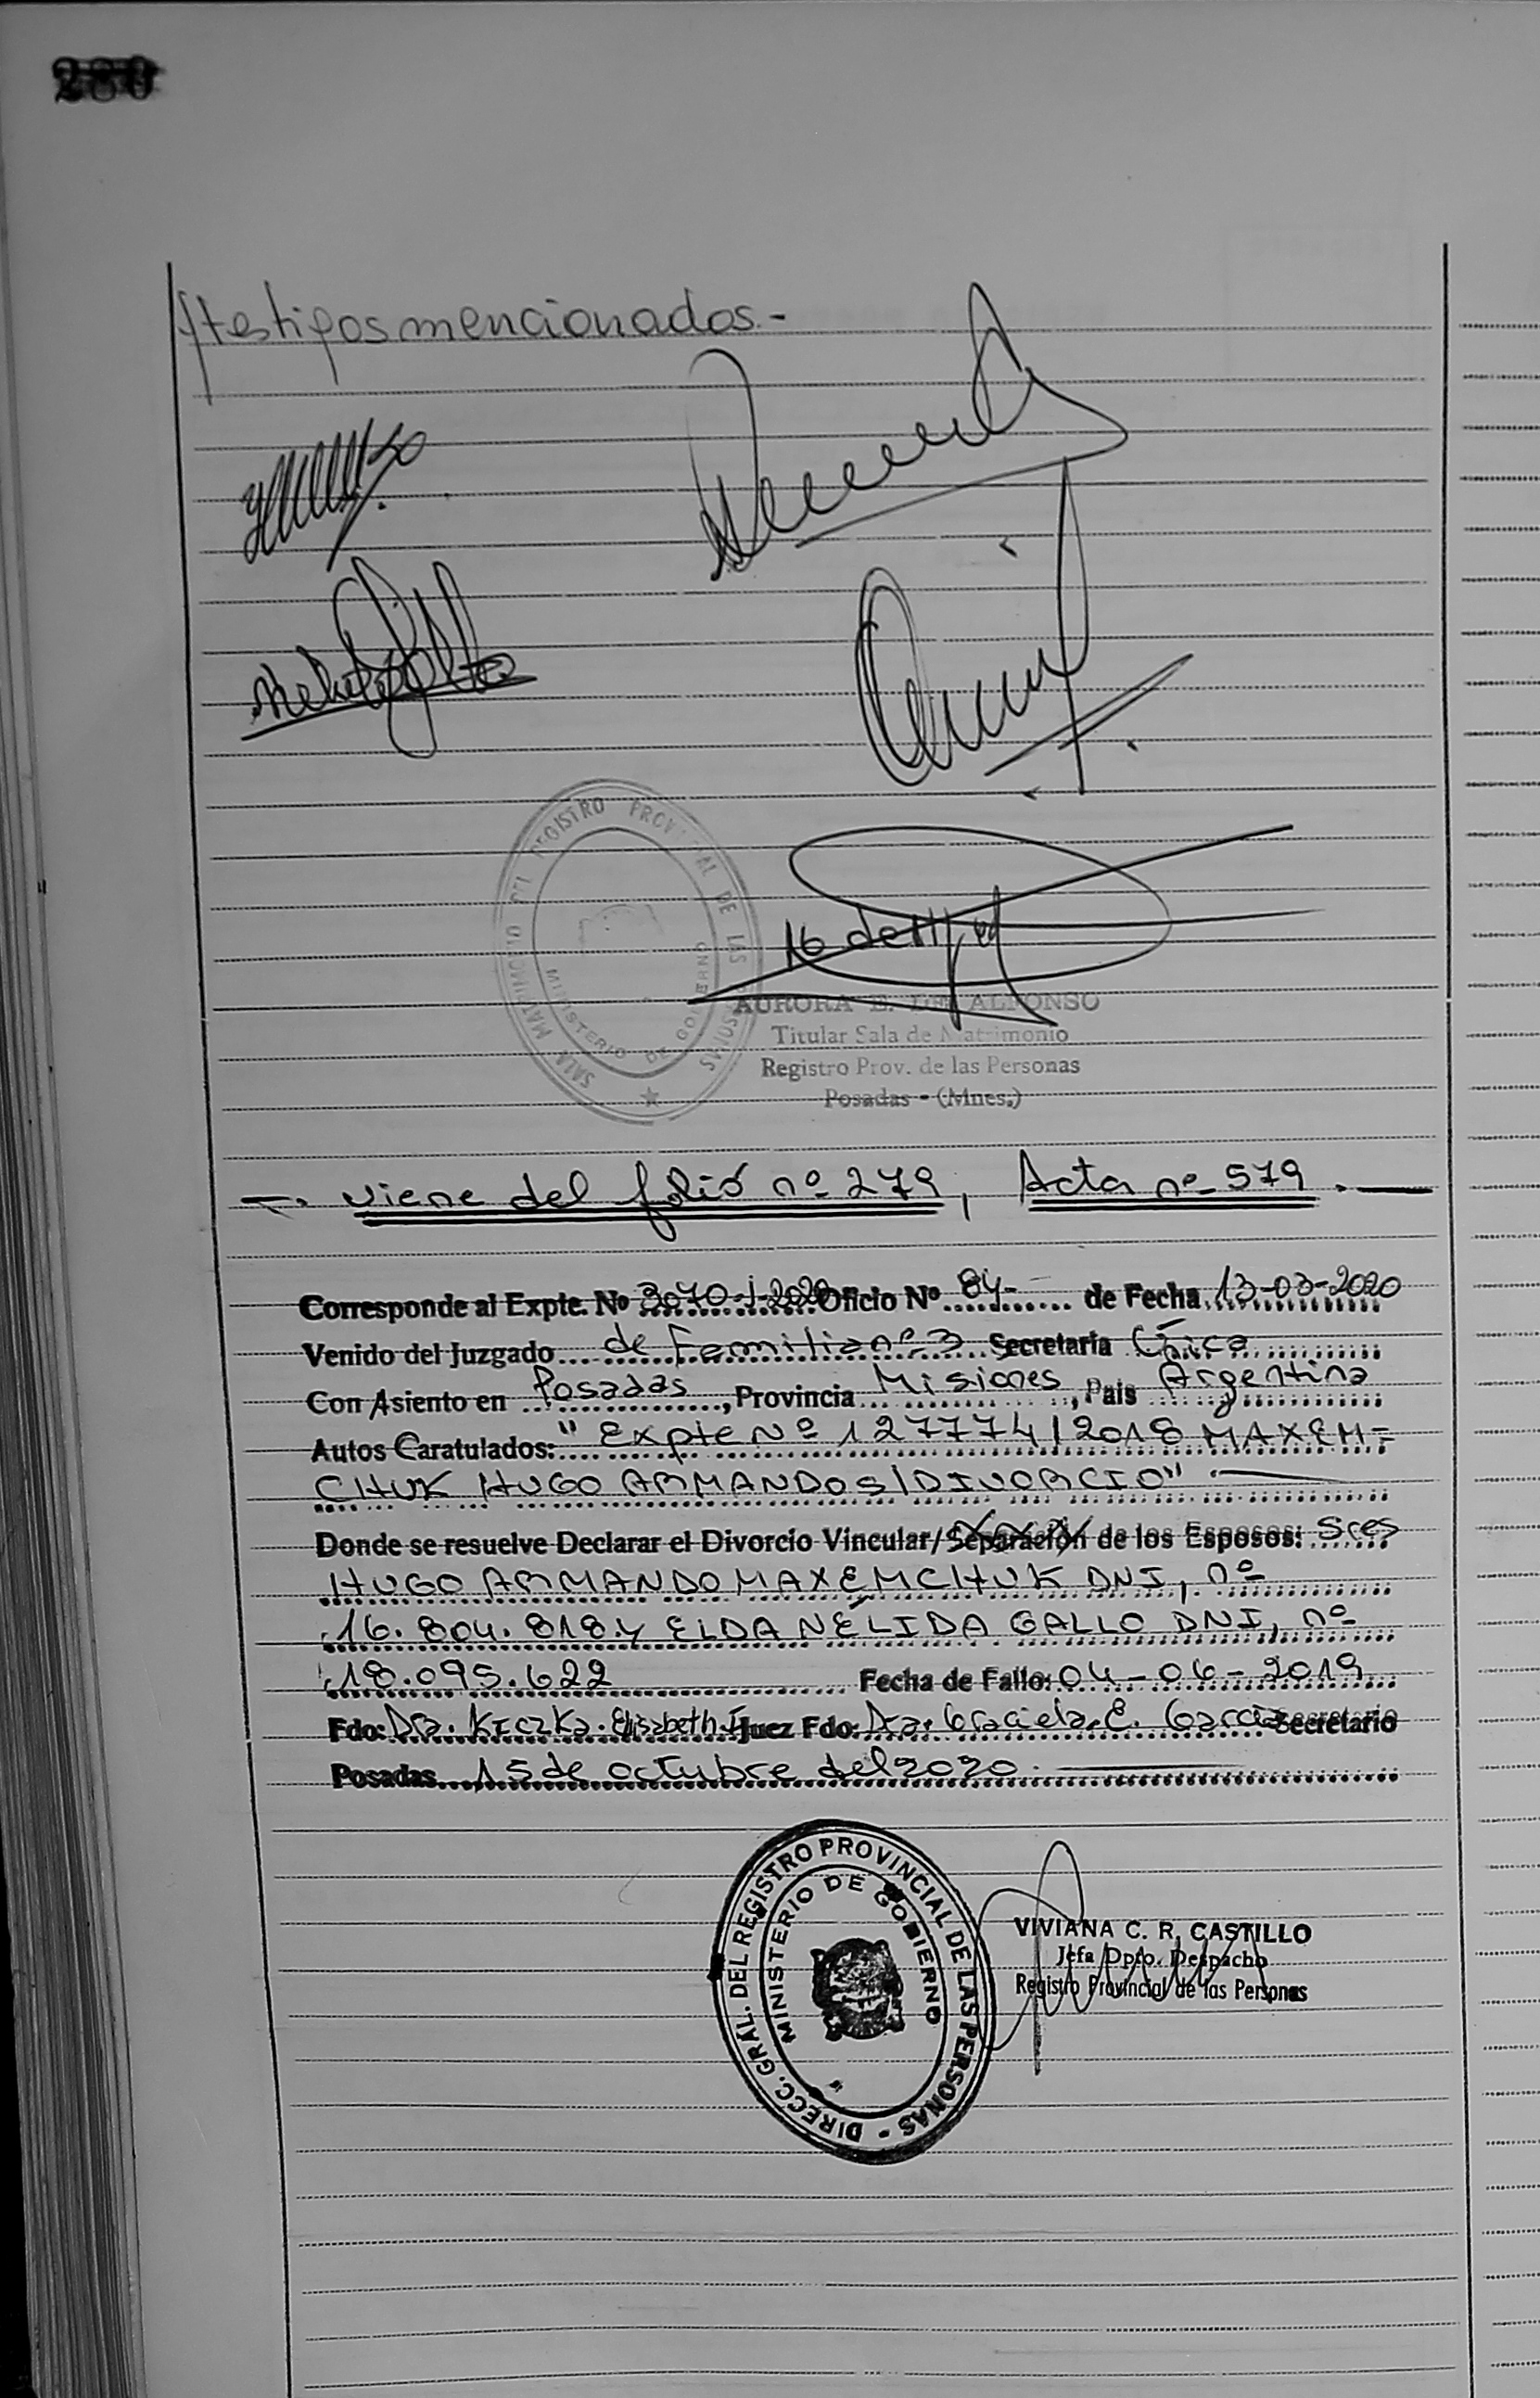 280
y testigos mencionados.-
SALA MATRIMONIO DEL REGISTRO PROVINCIAL DE LAS PERSONAS
MINISTERIO DE GOBIERNO
16 de
AURORA E. DE ALFONSO
Titular Sala de Matrimonio
Registro Prov. de las Personas
Posadas - (Mnes.)
—. viene del folio nº 279, Acta nº 579.—
Corresponde al Expte. Nº 3070-J-2020 Oficio Nº 84- de Fecha 13-03-2020
Venido del Juzgado de Familia nº 3 Secretaria Única
Con Asiento en Posadas, Provincia Misiones, País Argentina
Autos Caratulados: "Expte Nº 127774/2018 MAXEM=
CHUK HUGO ARMANDO S/DIVORCIO"
Donde se resuelve Declarar el Divorcio Vincular/Separación de los Esposos: Sres
HUGO ARMANDO MAXEMCHUK DNI, nº
16.804.818.y ELDA NÉLIDA GALLO DNI, nº
18.095.622 Fecha de Fallo: 04-06-2019
Fdo: Dra. Kiczka. Elisabeth. Juez Fdo: Dra. Graciela. E. Garcia Secretario
Posadas 15 de octubre del 2020.
DIRECC. GRAL. DEL REGISTRO PROVINCIAL DE LAS PERSONAS -
MINISTERIO DE GOBIERNO
VIVIANA C. R. CASTILLO
Jefa Dpto. Despacho
Registro Provincial de las Personas